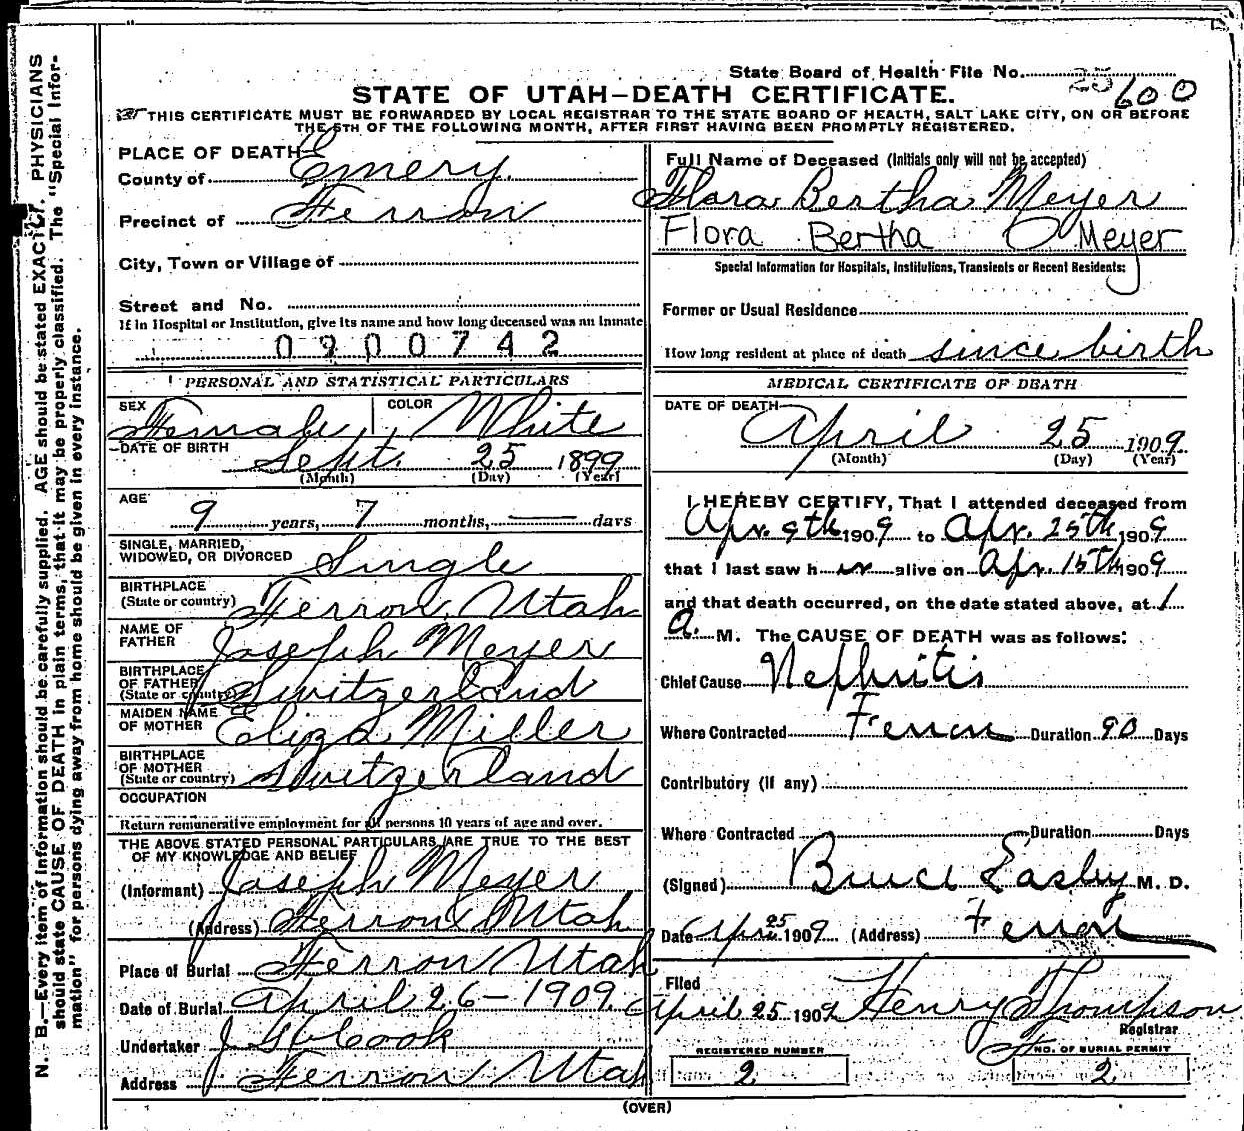 State Board of Health File No. 25 600
STATE OF UTAH—DEATH CERTIFICATE.
THIS CERTIFICATE MUST BE FORWARDED BY LOCAL REGISTRAR TO THE STATE BOARD OF HEALTH, SALT LAKE CITY, ON OR BEFORE
THE 5TH OF THE FOLLOWING MONTH, AFTER FIRST HAVING BEEN PROMPTLY REGISTERED.
PLACE OF DEATH
County of Emery
Precinct of Ferron
City, Town or Village of
Street and No.
If in Hospital or Institution, give its name and how long deceased was an Inmate
0900742
PERSONAL AND STATISTICAL PARTICULARS
SEX Female COLOR White
DATE OF BIRTH Sept. 25 1899
(Month) (Day) (Year)
AGE 9 years, 7 months, — days
SINGLE, MARRIED,
WIDOWED, OR DIVORCED Single
BIRTHPLACE
(State or country) Ferron Utah
NAME OF
FATHER Joseph Meyer
BIRTHPLACE
OF FATHER
(State or country) Switzerland
MAIDEN NAME
OF MOTHER Eliza Miller
BIRTHPLACE
OF MOTHER
(State or country) Switzerland
OCCUPATION
Return remunerative employment for all persons 10 years of age and over.
THE ABOVE STATED PERSONAL PARTICULARS ARE TRUE TO THE BEST
OF MY KNOWLEDGE AND BELIEF
(Informant) Joseph Meyer
(Address) Ferron Utah
Place of Burial Ferron Utah
Date of Burial April 26 - 1909.
Undertaker J Cook
Address Ferron Utah
Full Name of Deceased (Initials only will not be accepted)
Flora Bertha Meyer
Flora Bertha Meyer
Special Information for Hospitals, Institutions, Transients or Recent Residents:
Former or Usual Residence
How long resident at place of death since birth
MEDICAL CERTIFICATE OF DEATH
DATE OF DEATH
April 25 1909.
(Month) (Day) (Year)
I HEREBY CERTIFY, That I attended deceased from
Apr. 9th 1909 to Apr. 25th 1909
that I last saw h er alive on Apr. 15th 1909
and that death occurred, on the date stated above, at 1
a. M. The CAUSE OF DEATH was as follows:
Chief Cause Nephritis
Where Contracted Ferron Duration 90 Days
Contributory (if any)
Where Contracted Duration Days
(Signed) Bruce Easley M. D.
Date Apr 25 1909 (Address) Ferron
Filed
April 25 1909 Henry Thompson
Registrar
REGISTERED NUMBER
2
NO. OF BURIAL PERMIT
2
(OVER)
N. B.—Every item of information should be carefully supplied. AGE should be stated EXACTLY. PHYSICIANS
should state CAUSE OF DEATH in plain terms, that it may be properly classified. The "Special Infor-
mation" for persons dying away from home should be given in every instance.